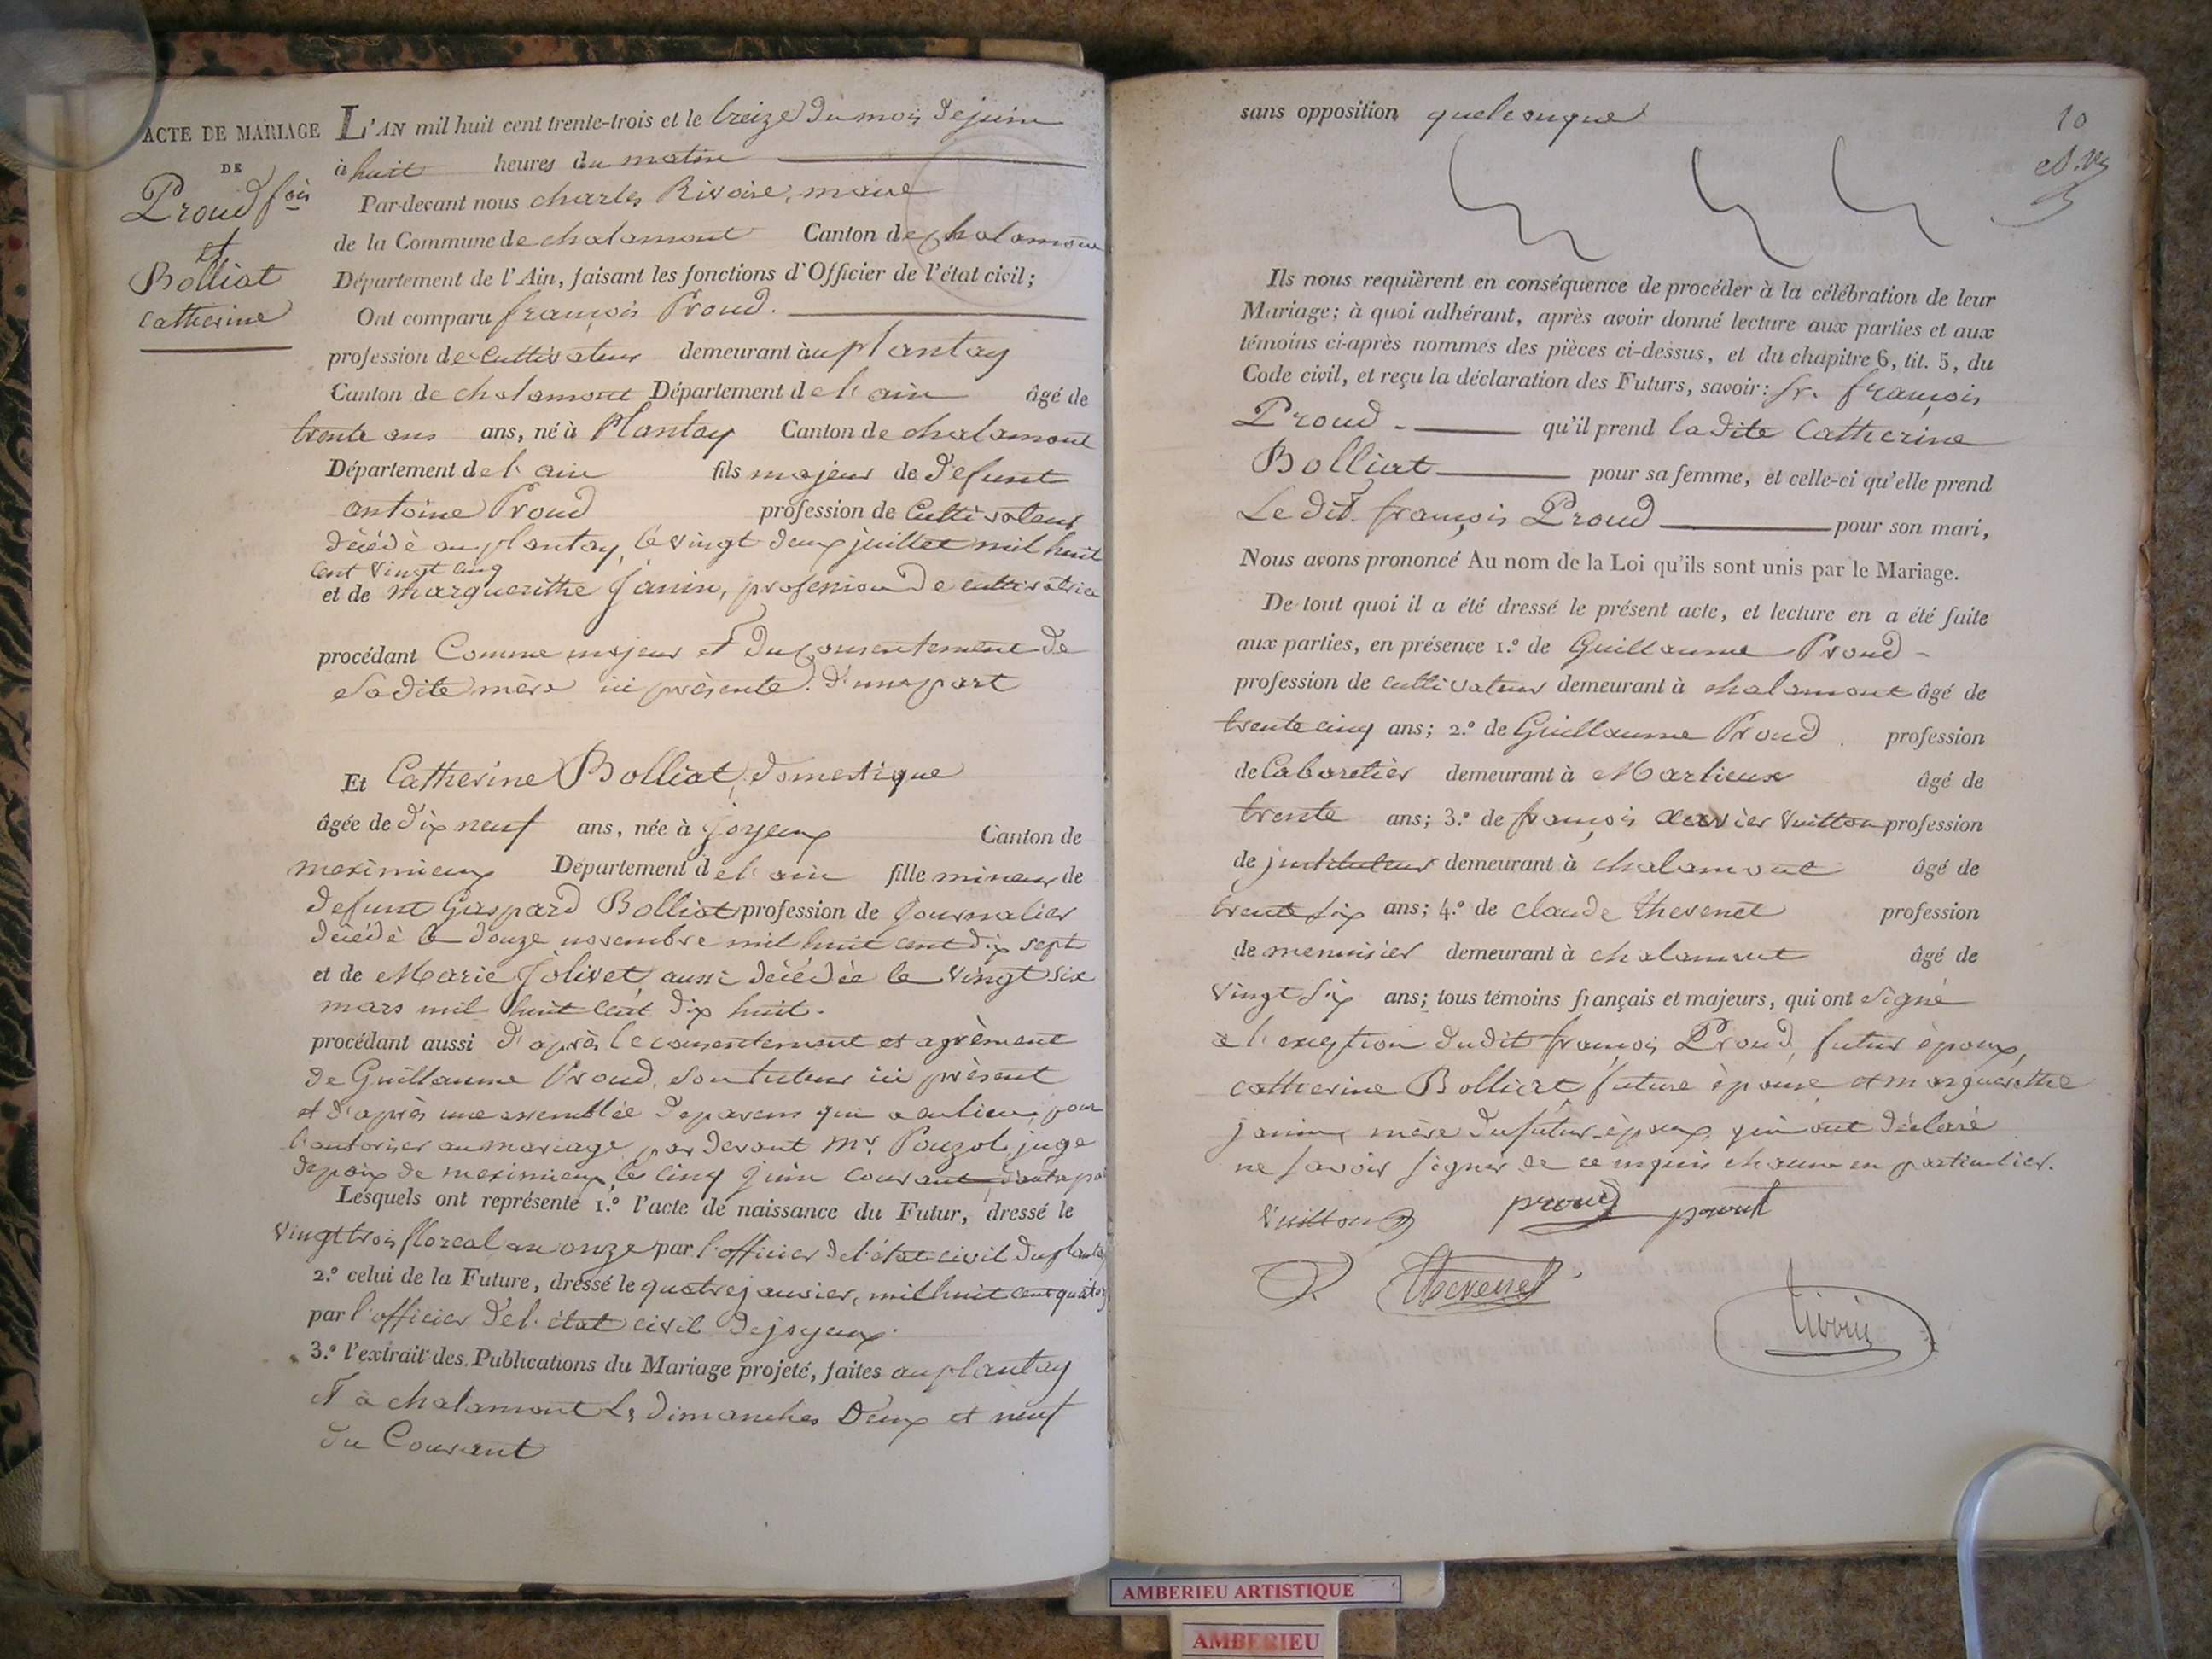 ACTE DE MARIAGE
DE
Proud fois
et
Bolliat
Catherine
L'AN mil huit cent trente-trois et le treize du mois de juin
à huit heures du matin
Par-devant nous charles Rivoire, maire
de la Commune de chalamont Canton de chalamont
Département de l'Ain, faisant les fonctions d'Officier de l'état civil;
Ont comparu françois Proud.
profession de cultivateur demeurant au plantay
Canton de chalamont Département de l'ain âgé de
trente ans ans, né à Plantay Canton de chalamont
Département de l'ain fils majeur de defunt
antoine Proud profession de Cultivateur
décédé au plantay, le vingt deux juillet mil huit
cent vingt cinq
et de marguerithe Janin, profession de cultivatrice
procédant Comme majeur et du consentement de
sadite mère ici présente. d'une part
Et Catherine Bolliat, domestique
âgée de dix neuf ans, née à joyeux Canton de
meximieux Département de l'ain fille mineur de
defunt Gaspard Bolliat profession de Journalier
décédé le douze novembre mil huit cent dix sept
et de Marie Jolivet aussi décédée le vingt six
mars mil huit cent dix huit.
procédant aussi d'après le consentement et agrèment
de Guillaume Proud, son tuteur ici présent
et d'après une assemblée de parens qui a eu lieu, pour
l'autoriser au mariage par devant Mr. Pouzol, juge
de paix de meximieux, le cinq juin courant, d'autre pa
Lesquels ont représenté 1.º l'acte de naissance du Futur, dressé le
vingt trois floreal an onze par l'officier de l'état civil du plantay
2.º celui de la Future, dressé le quatre janvier, mil huit cent quatorz
par l'officier de l'état civil de joyeux.
3.º l'extrait des Publications du Mariage projeté, faites au plantay
et a chalamont les dimanches Deux et neuf
du Courant
10
sans opposition quelconque
Ils nous requièrent en conséquence de procéder à la célébration de leur
Mariage; à quoi adhérant, après avoir donné lecture aux parties et aux
témoins ci-après nommés des pièces ci-dessus, et du chapitre 6, tit. 5, du
Code civil, et reçu la déclaration des Futurs, savoir: Sr. françois
Proud qu'il prend ladite Catherine
Bolliat pour sa femme, et celle-ci qu'elle prend
Le dit françois Proud pour son mari,
Nous avons prononcé Au nom de la Loi qu'ils sont unis par le Mariage.
De tout quoi il a été dressé le présent acte, et lecture en a été faite
aux parties, en présence 1.º de Guillaume Proud
profession de cultivateur demeurant à chalamont âgé de
trente cinq ans; 2.º de Guillaume Proud profession
de Cabaretier demeurant à Marlieux âgé de
trente ans; 3.º de françois xavier Vuitton profession
de jnstituteur demeurant à chalamont âgé de
trente six ans; 4.º de claude thevenet profession
de menuisier demeurant à chalamont âgé de
vingt six ans; tous témoins français et majeurs, qui ont signé
à l'exeption dudit françois Proud, futur époux,
catherine Bolliat future épouse et marguerithe
janin, mère du futur époux, qui ont déclaré
ne savoir signer de ce enquis chacun en particulier.
Vuitton proud proud
Thevenet
AMBERIEU ARTISTIQUE
AMBERIEU